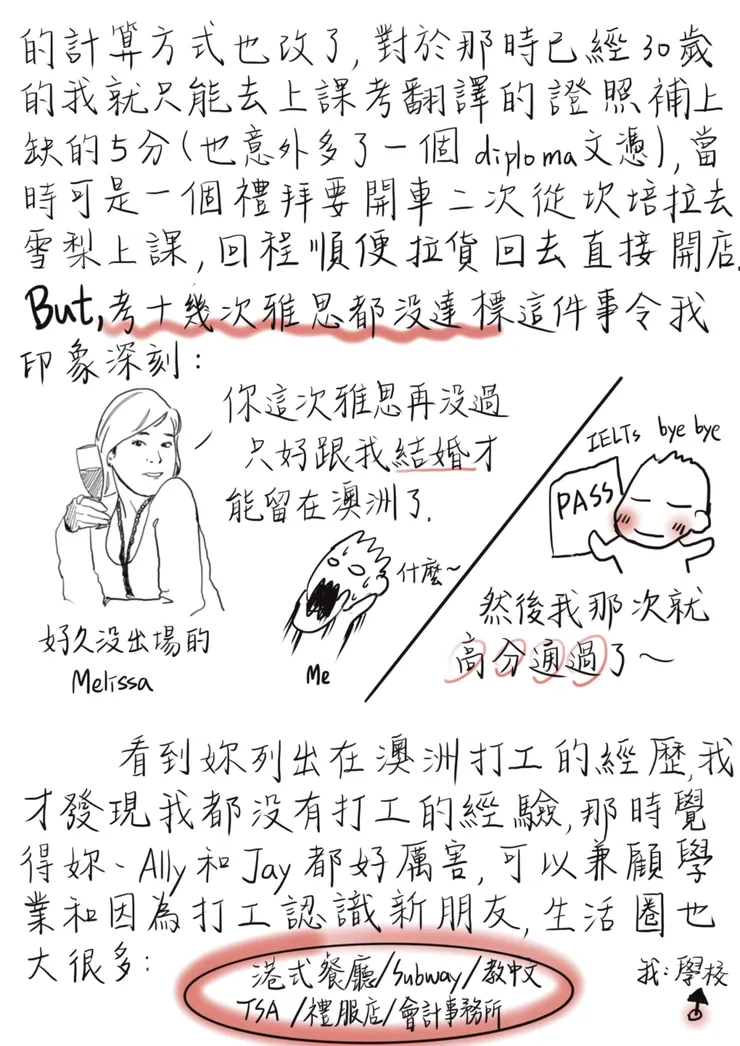 的計算方式也改了, 對於那時已經30歲
的我就只能去上課考翻譯的證照補上
缺的5分(也意外多了一個 diploma文憑), 當
時可是一個禮拜要開車二次從坎培拉去
雪梨上課, 回程順便拉貨回去直接開店.
But, 考十幾次雅思都沒達標這件事令我
印象深刻:
你這次雅思再沒過
只好跟我結婚才
能留在澳洲了.
什麼~
Me
好久沒出場的
Melissa
IELTs bye bye
PASS
然後我那次就
高分通過了~
看到妳列出在澳洲打工的經歷, 我
才發現我都沒有打工的經驗, 那時覺
得妳、Ally和Jay都好厲害, 可以兼顧學
業和因為打工認識新朋友, 生活圈也
大很多:
港式餐廳/Subway/教中文
TSA/禮服店/會計事務所
我:學校